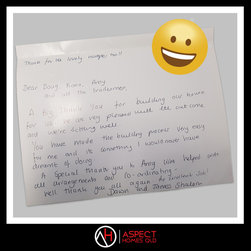 Thanks for the lovely
Dear Doug, Karen, Andy
and all the tradesmen,
A Big Thank You for building our house
for us. We are very pleased with the outcome
and we're settling well.
You have made the building process very easy
for me and its something I would never have
dreamt of doing.
A Special thank you to Andy who helped with
all arrangements and co-ordinating.
Well thank you all again
Dawn and James
ASPECT
HOMES QLD